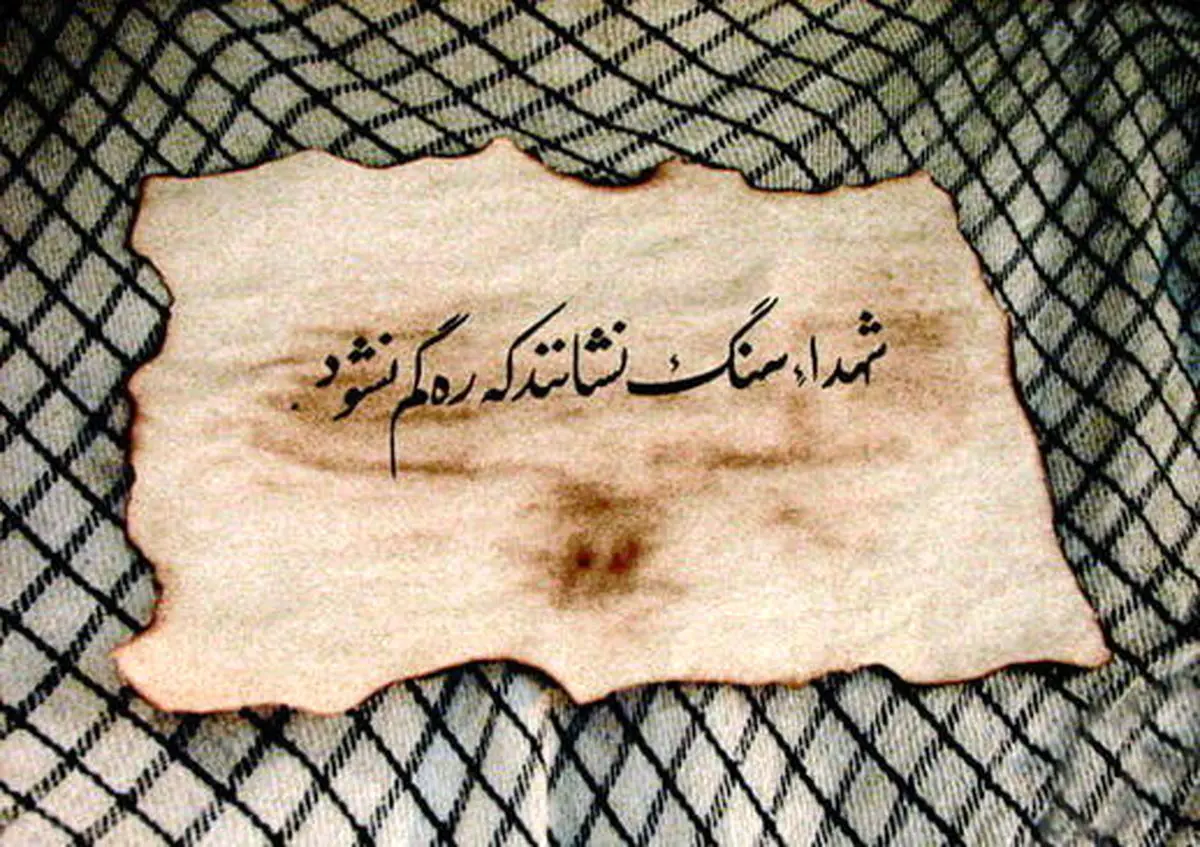 شهداء، سنگ نشانند که ره گم نشود